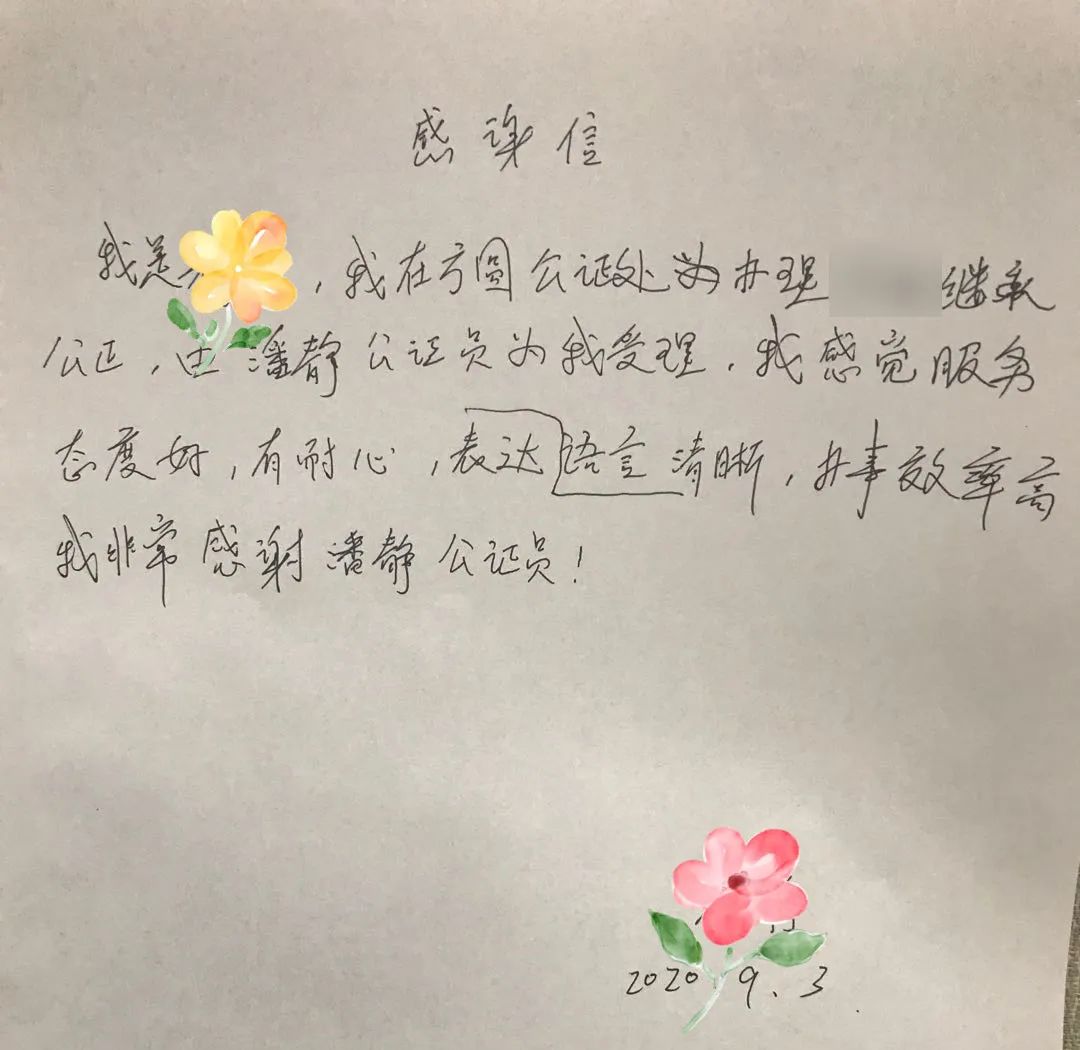 感谢信
我是，我在方圆公证处为办理继承
公正，由潘静公证员为我受理，我感觉服务
态度好，有耐心，表达语言清晰，办事效率高
我非常感谢潘静公证员！
2020 9.3